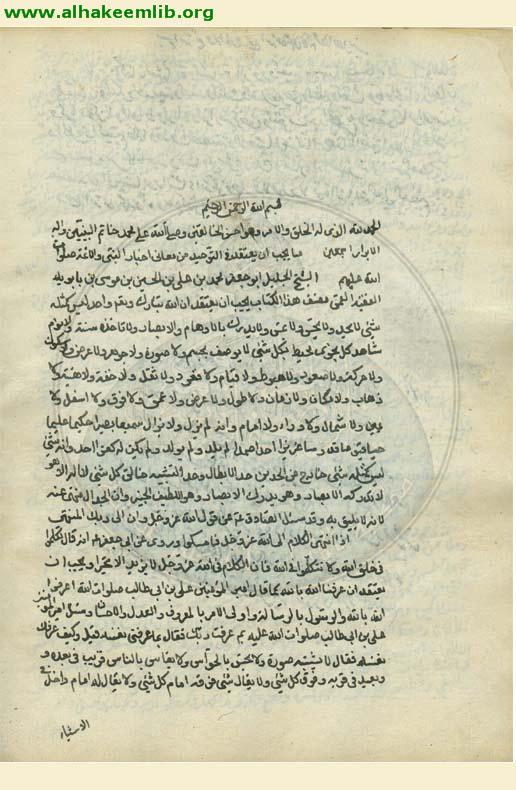 www.alhakeemlib.org
بسم الله الرحمن الرحيم
الحمد لله الذي له الخلق والامر وهو احسن الخالقين وصلى الله على محمد خاتم النبيين واله
الابرار اجمعين ما يجب ان يعتقد في التوحيد من معاني اخبار النبي والائمة صلوات
الله عليهم الشيخ الجليل ابو جعفر محمد بن علي بن الحسين بن موسى بن بابويه
الفقيه القمي مصنف هذا الكتاب يجب ان يعتقد ان الله تبارك وتعالى واحد ليس كمثله
شئ لا يحد ولا يحس ولا يدرك بالاوهام والابصار ولا تاخذه سنة ولا نوم
شاهد كل نجوى محيط بكل شئ لا يوصف بجسم ولا صورة ولا جوهر ولا عرض ولا سكون
ولا حركة ولا صعود ولا هبوط ولا قيام ولا قعود ولا ثقل ولا خفة ولا
ذهاب ولا مكان ولا زمان ولا طول ولا عرض ولا عمق ولا فوق ولا اسفل ولا
يمين ولا شمال ولا وراء ولا امام وانه لم يزل ولا يزال سميعا بصيرا حكيما عليما
حيا قيوما قدوسا عزيزا احدا صمدا لم يلد ولم يولد ولم يكن له كفوا احد وانه شئ
ليس كمثله شئ خارج من الحدين حد الابطال وحد التشبيه خالق كل شئ لا اله الا هو
لا تدركه الابصار وهو يدرك الابصار وهو اللطيف الخبير وان الجدال منهى عنه
لانه لا يليق به وقد سئل الصادق عن قول الله عز وجل وان الى ربك المنتهى
اذا انتهى الكلام الى الله عز وجل فامسكوا وروى عن ابي جعفر انه قال تكلموا
في خلق الله ولا تتكلموا في الله فان الكلام في الله عز وجل لا يزيد الا تحيرا ويجب ان
يعتقد ان عرفنا الله بالله كما قال امير المؤمنين علي بن ابي طالب صلوات الله اعرفوا
الله بالله والرسول بالرسالة واولى الامر بالمعروف والعدل والاحسان وسئل امير المؤمنين
علي بن ابي طالب صلوات الله عليه بم عرفت ربك فقال بما عرفني نفسه فقيل وكيف عرفك
نفسه فقال لا يشبه صورة ولا يحس بالحواس ولا يقاس بالناس قريب في بعده
وبعيد في قربه وفوق كل شئ ولا يقال شئ فوقه امام كل شئ ولا يقال له امام داخل في
الاشياء